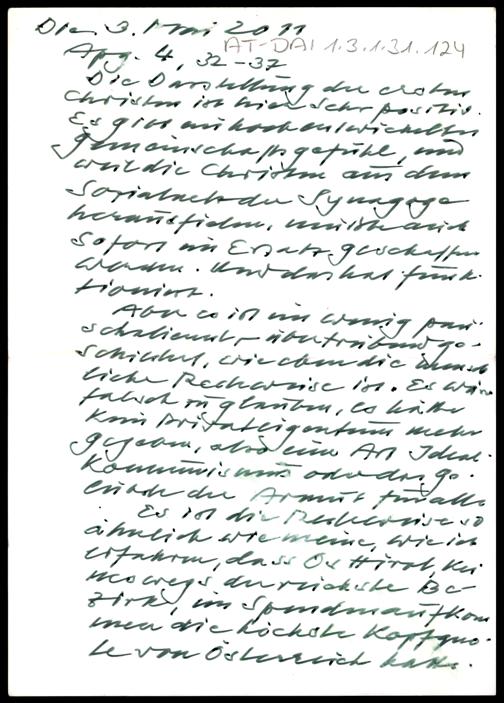 Die. 3. Mai 2011
AT-DAI 1.3.1.31.124
Apg. 4, 32-37
Die Darstellung der ersten
Christen ist hier sehr positiv.
Es gibt ein hochentwickeltes
Gemeinschaftsgefühl, und
weil die Christen aus dem
Sozialnetz der Synagoge
herausfielen, mußte auch
sofort ein Ersatz geschaffen
werden. Und das hat funk-
tioniert.
Aber es ist ein wenig pau-
schalierend - übertrieben ge-
schildert, wie eben die
liche Redeweise ist. Es wäre
falsch zu glauben, es hätte
kein Privateigentum mehr
gegeben, also eine Art Ideal-
Kommunismus oder das Ge-
lübde der Armut für alle
Es ist die Redeweise so
ähnlich wie meine, wie ich
erfahren, dass Osttirol, kei
neswegs der reichste Be-
zirk, im Spendenaufkom
men die höchste Kopfquo-
te von Österreich hatte.